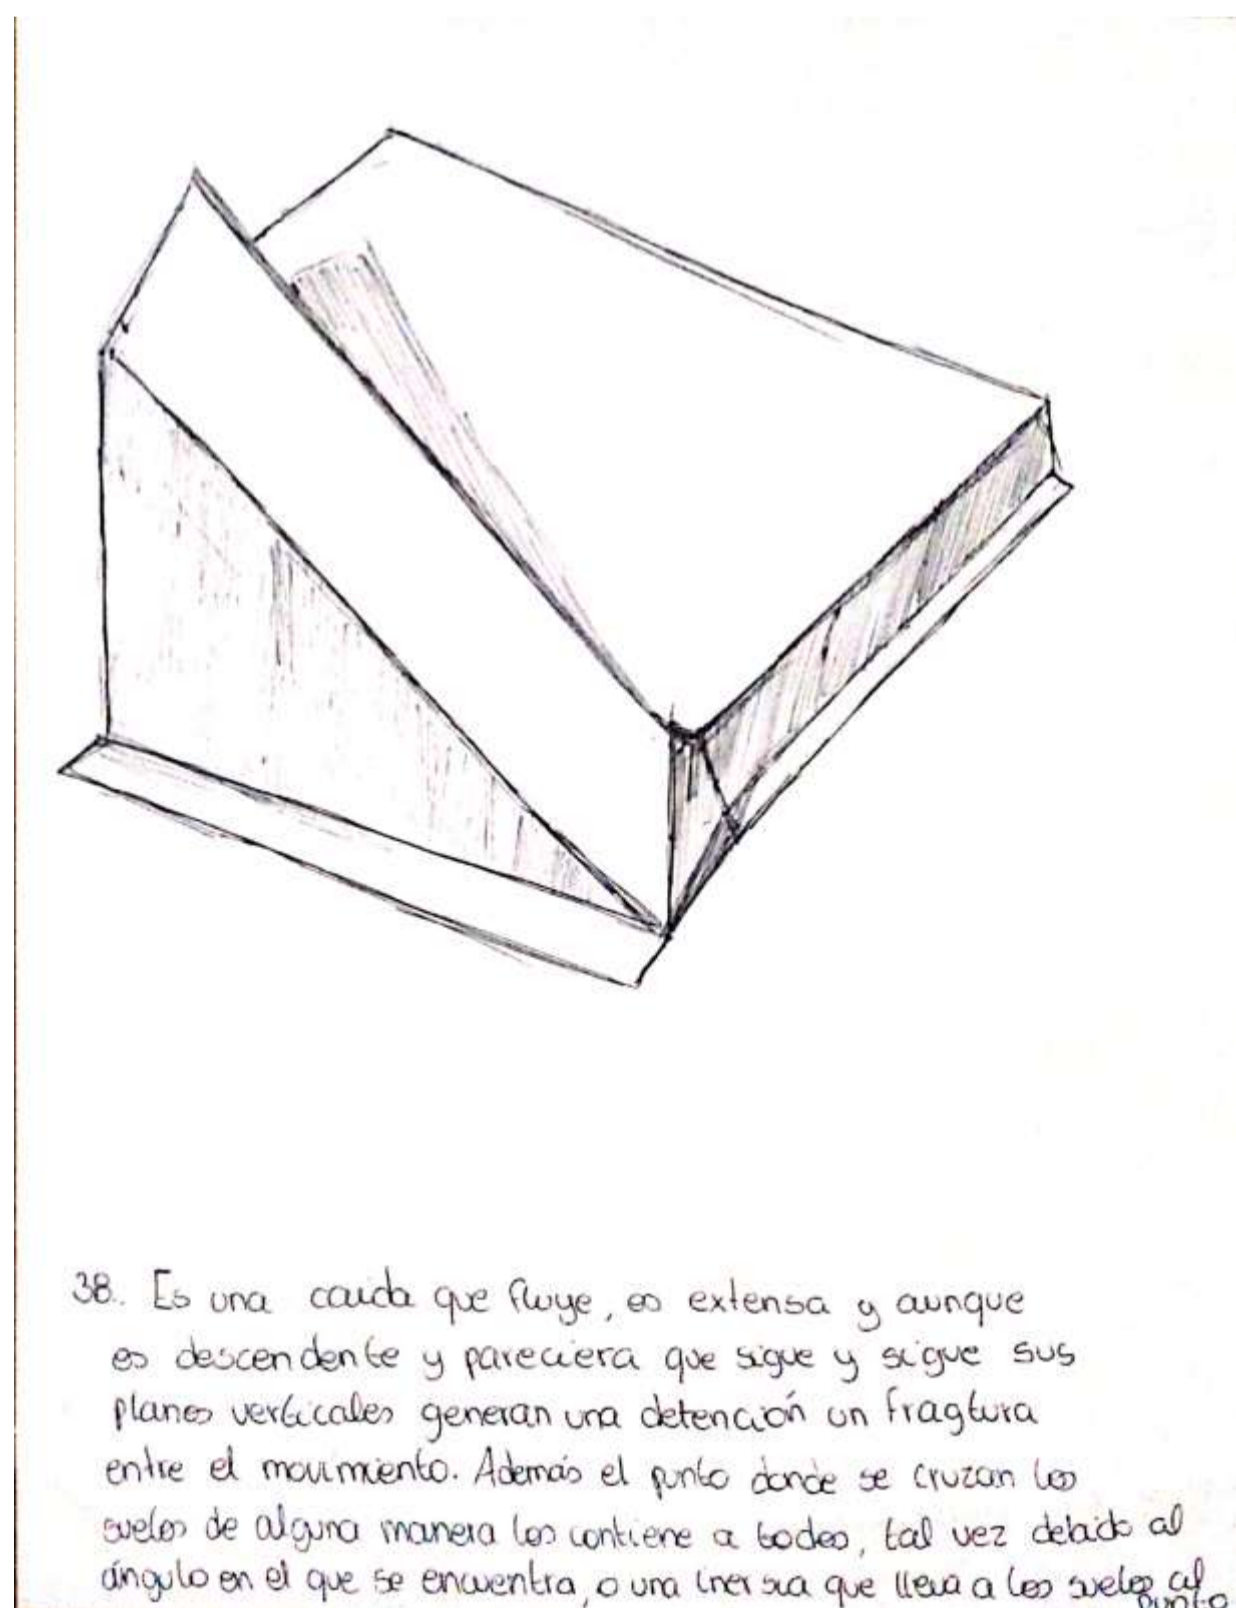 38. Es una caida que fluye, es extensa y aunque
es descendente y pareciera que sigue y sigue sus
planos verticales generan una detención un fragtura
entre el movimiento. Además el punto donde se cruzan los
suelos de alguna manera los contiene a todos, tal vez debido al
ángulo en el que se encuentra, o una inersia que lleva a los suelos al
punto